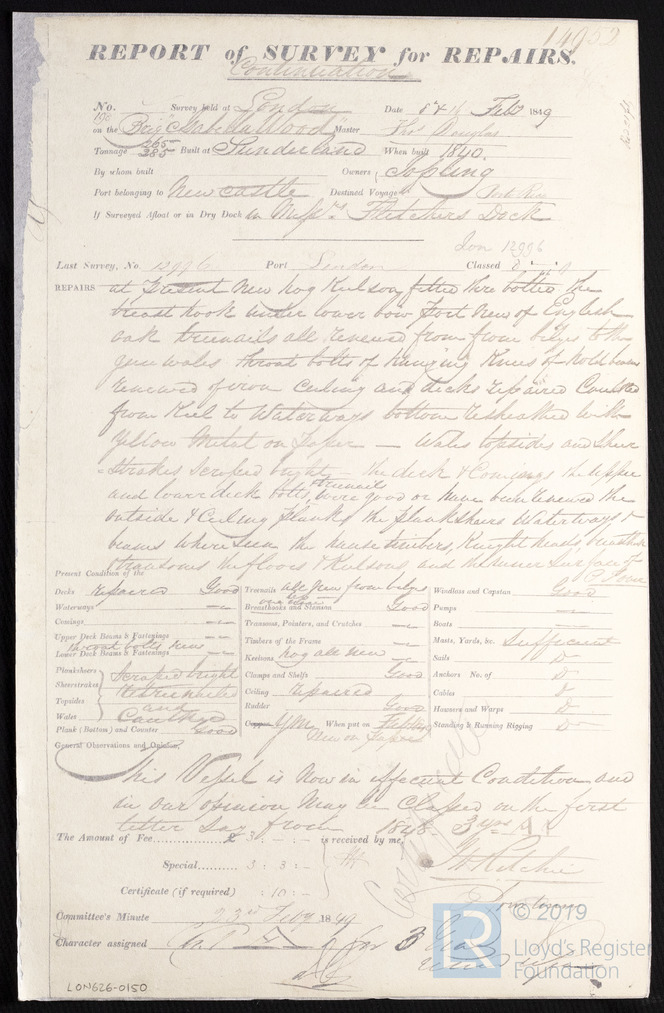 14952
REPORT of SURVEY for REPAIRS.
Continuation
No. 198 Survey held at London Date 8 & 14 Feby 1849
on the Brig "Isabella Wood" Master Thos Douglas
Tonnage 265 285 Built at Sunderland When built 1840.
By whom built Owners Topling
Port belonging to Newcastle Destined Voyage
If Surveyed Afloat or in Dry Dock in Messrs Fletchers Dock
Lon 12996
Last Survey, No. 12996 Port London Classed
REPAIRS at present New hog Keelson fitted bolted the
breast hook under lower bow Port New of English
oak treenails all renewed from bilges to the
gunwales throat bolts of hanging Knees of hold beams
renewed of iron Ceiling and decks repaired Caulked
from Keel to Waterways bottom resheathed with
Yellow Metal on Paper — Wales topsides and Sheer
Strakes scraped bright — the deck & Comings the upper
and lower deck bolts, treenails were good or have been renewed the
outside & Ceiling Planks the Planksheers Waterways &
beams where seen the hawse timbers, Knight heads, breasthooks
transoms the floors & Keelsons, and the inner surface of
Present Condition of the
Decks repaired Good
Waterways
Comings
Upper Deck Beams & Fastenings
throat bolts new
Lower Deck Beams & Fastenings
Planksheers
Sheerstrakes
Topsides
Wales
Scraped bright
and
Caulked
Plank (Bottom) and Counter Good
Treenails all New from bilges
Breasthooks and Stemson Good
Transoms, Pointers, and Crutches
Timbers of the Frame
Keelsons hog all new
Clamps and Shelfs Good
Ceiling repaired
Rudder Good
Copper YM When put on Feb 49
New on Paper
Windlass and Capstan Good
Pumps
Boats
Masts, Yards, &c. Sufficient
Sails Do
Anchors No. of Do
Cables Do
Hawsers and Warps Do
Standing & Running Rigging Do
General Observations and Opinion,
This Vessel is Now in efficient Condition and
in our opinion May be Classed on the first
letter say from 1848. 3 yrs A 1
The Amount of Fee £ 3 : — : — is received by me,
Special 3 : 3 : —
Certificate (if required) : 10 : —
W. Ritchie
Committee's Minute 23rd Feby 1849
Character assigned
for 3 Years
LON626-0150
© 2019
Lloyd's Register
Foundation